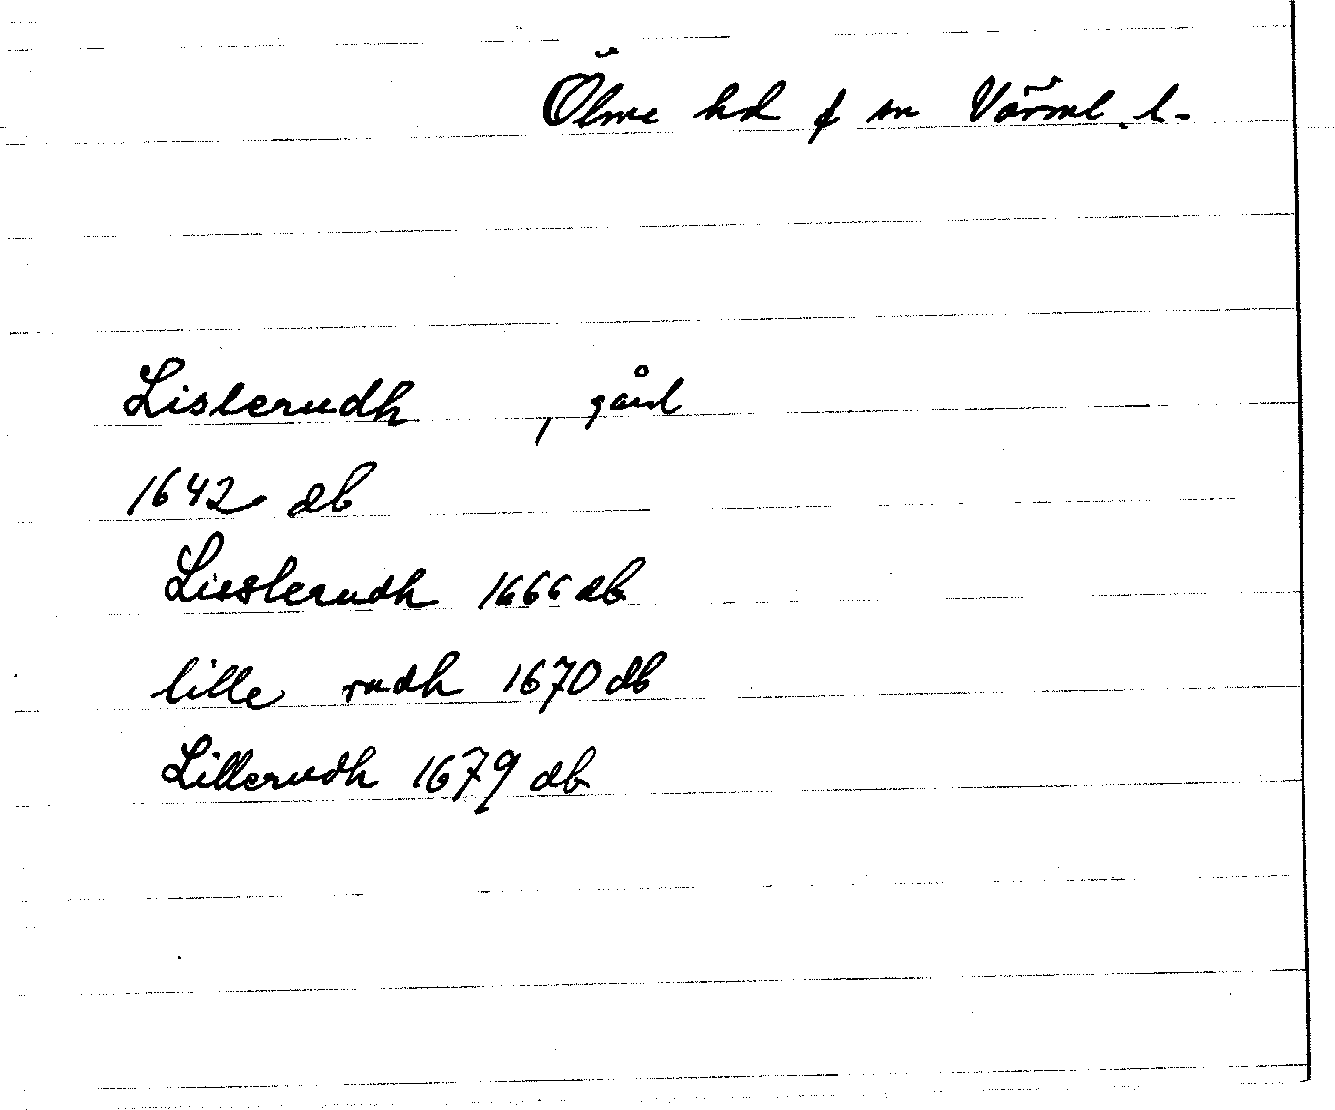 Ölme hd o sn Värml. l.
Lislerudh , gård
1642 db
Lisslerudh 1666 db
lille rudh 1670 db
Lillerudh 1679 db